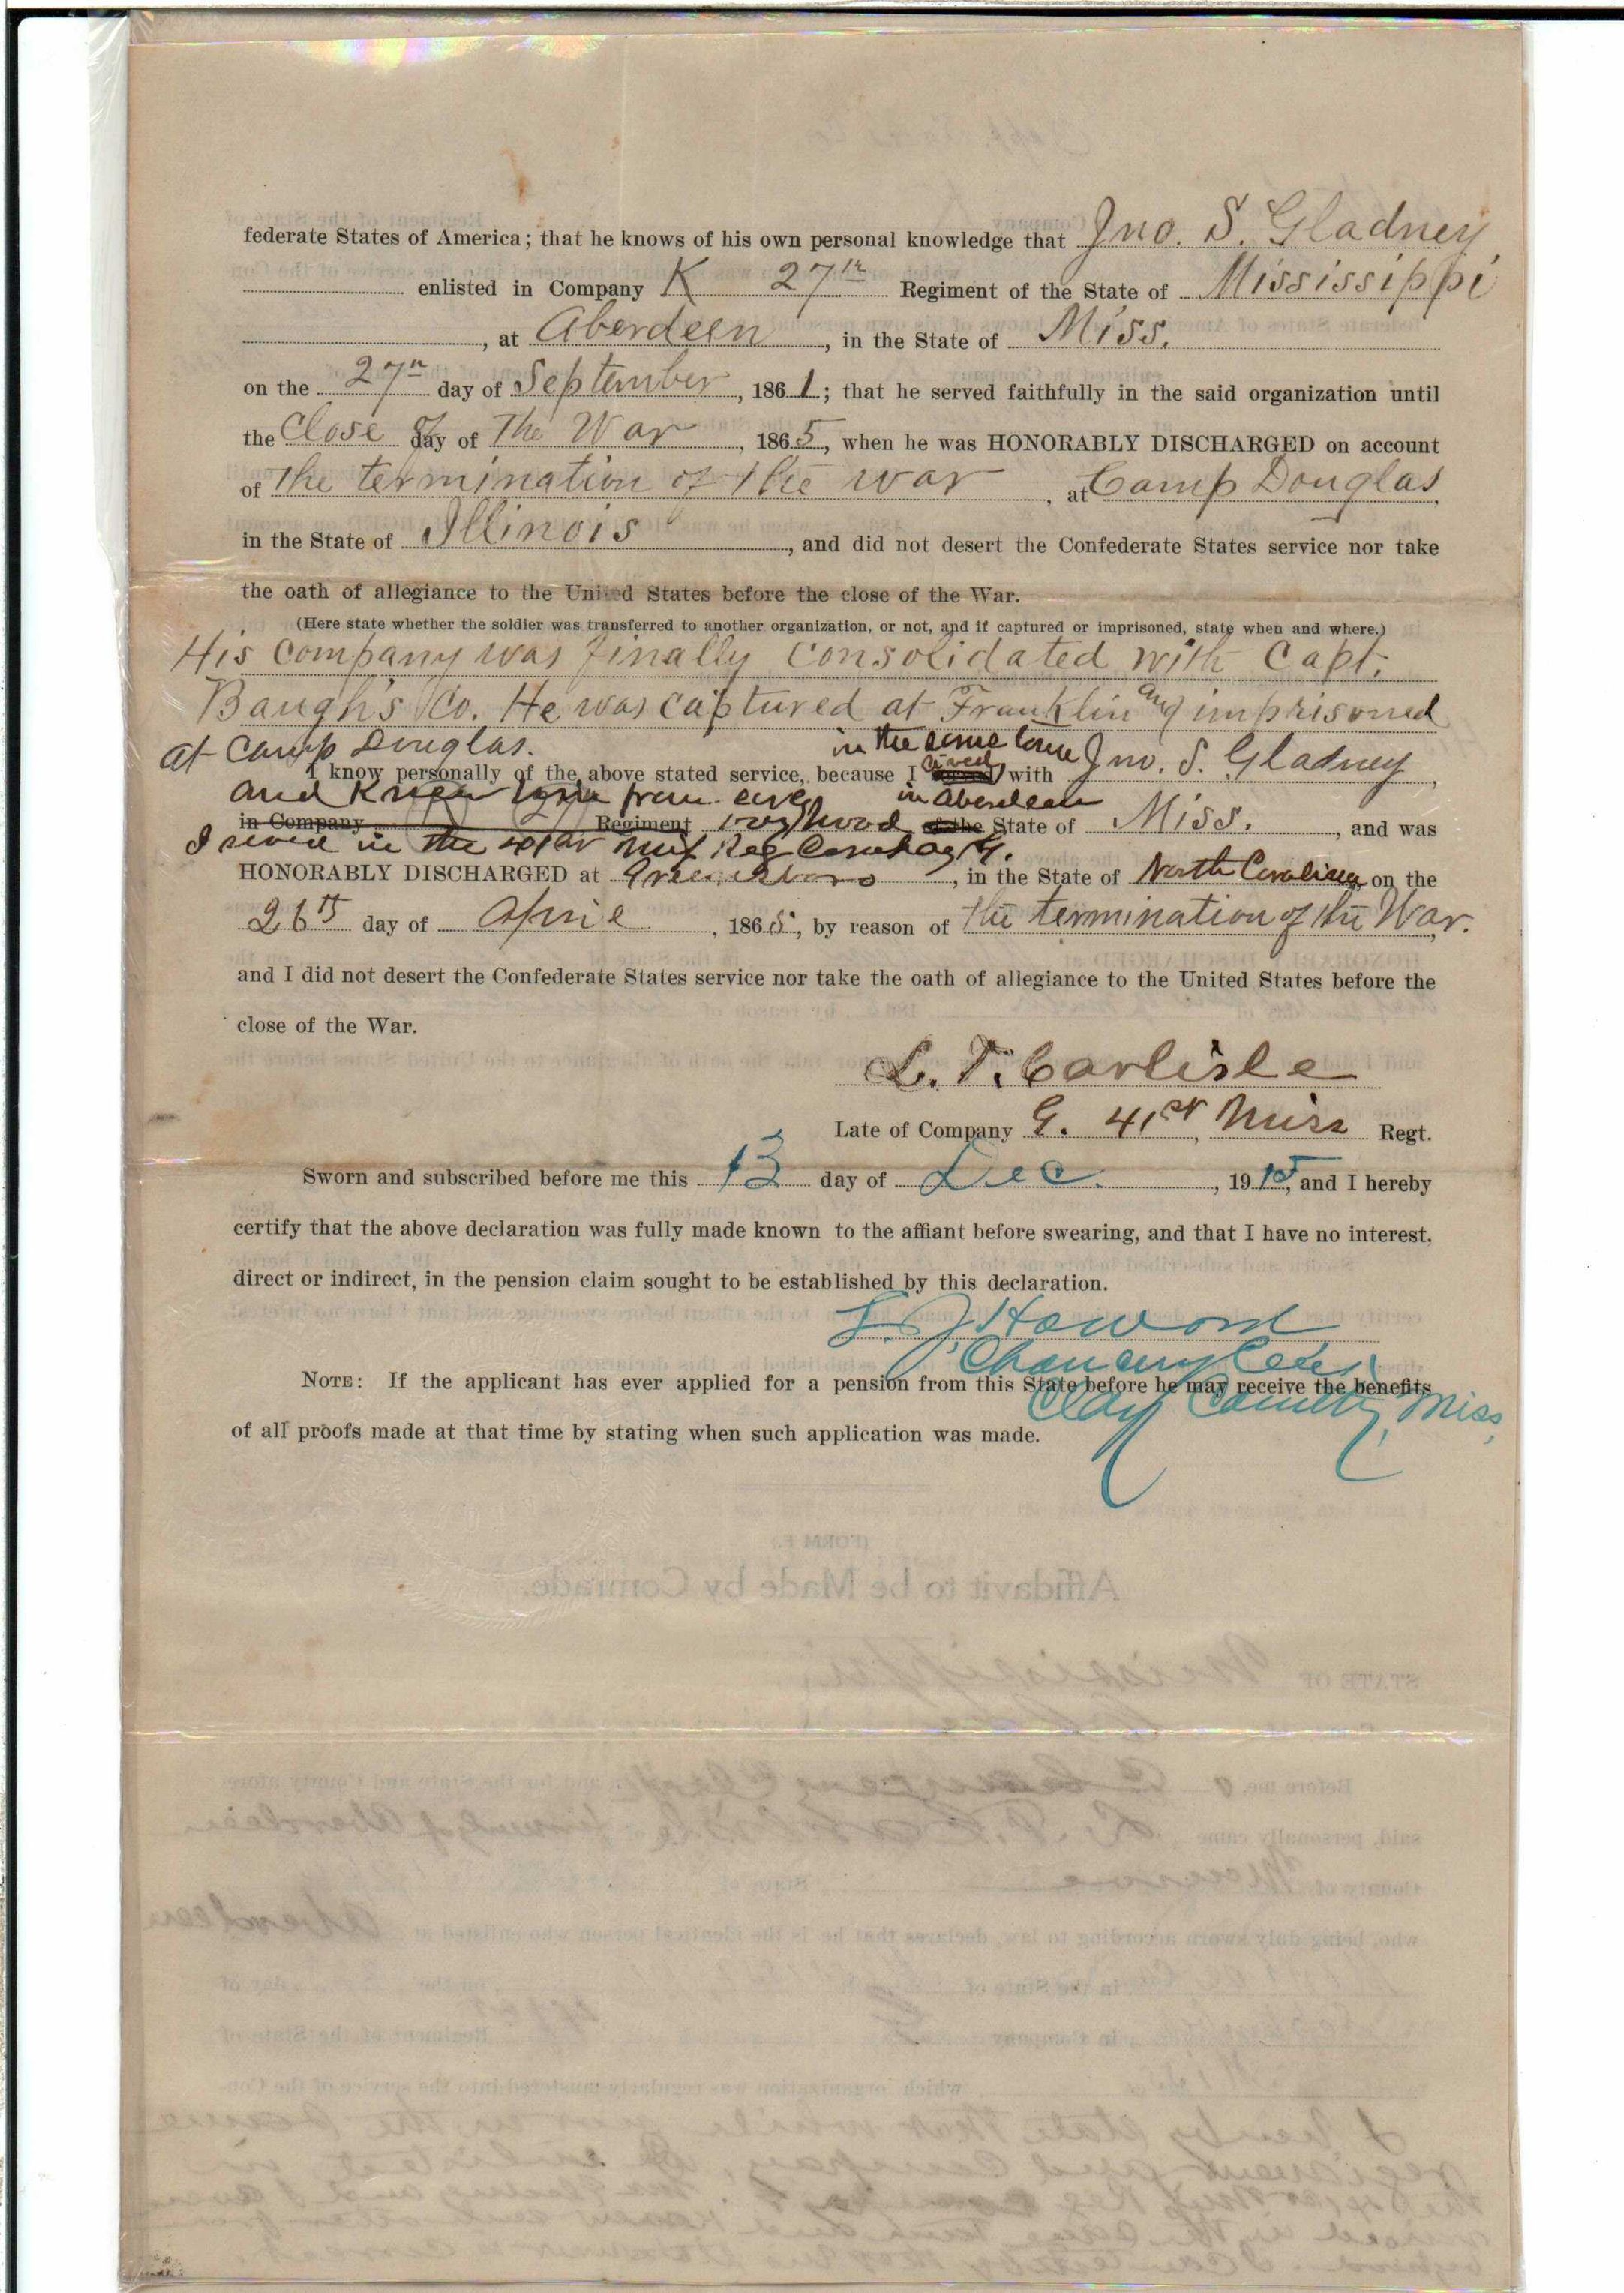 federate States of America; that he knows of his own personal knowledge that Jno. S. Gladney
enlisted in Company K 27th Regiment of the State of Mississippi
, at Aberdeen, in the State of Miss.
on the 27th day of September, 1861; that he served faithfully in the said organization until
the Close of day of The War, 1865, when he was HONORABLY DISCHARGED on account
of The termination of the war, at Camp Douglas,
in the State of Illinois, and did not desert the Confederate States service nor take
the oath of allegiance to the United States before the close of the War.
(Here state whether the soldier was transferred to another organization, or not, and if captured or imprisoned, state when and where.)
His company was finally consolidated with Capt.
Baugh's Co. He was captured at Franklin and imprisoned
at Camp Douglas.
in the same town
I know personally of the above stated service, because I lived with Jno. S. Gladney
and Knew him from in Aberdeen
in Company Regiment boyhood of the State of Miss., and was
I in the 41st Miss Reg Company G.
HONORABLY DISCHARGED at Greensboro, in the State of North Carolina on the
26th day of April, 1865, by reason of the termination of the War.
and I did not desert the Confederate States service nor take the oath of allegiance to the United States before the
close of the War.
L. T. Carlisle
Late of Company G. 41st Miss Regt.
Sworn and subscribed before me this 13 day of Dec., 1915, and I hereby
certify that the above declaration was fully made known to the affiant before swearing, and that I have no interest,
direct or indirect, in the pension claim sought to be established by this declaration.
L. J. Howard
Chancery Clerk
NOTE: If the applicant has ever applied for a pension from this State before he may receive the benefits
Clay County, Miss.
of all proofs made at that time by stating when such application was made.